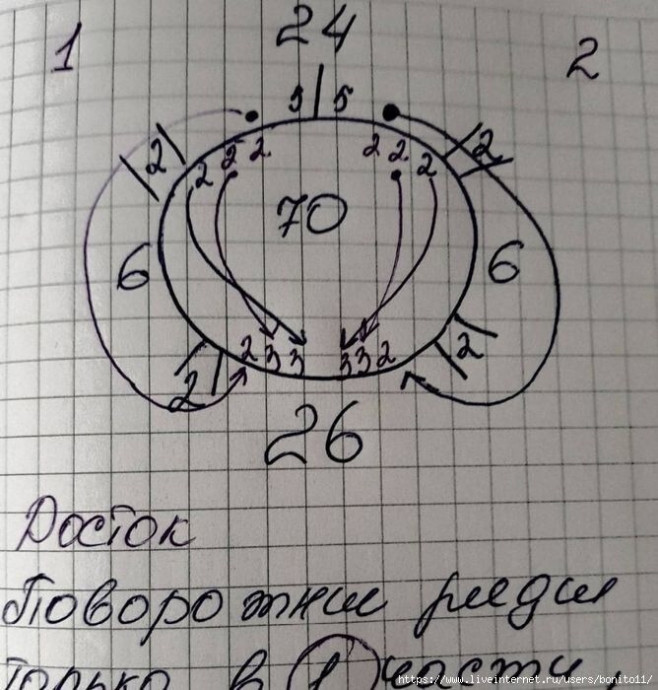 24
1 2
5 5
2 2
2 2 2 2 2 2
70
6 6
2 3 3 3 3 2
2 2
26
Росток
Поворотные ряды
только в 1 части.
https://www.liveinternet.ru/users/bonito11/